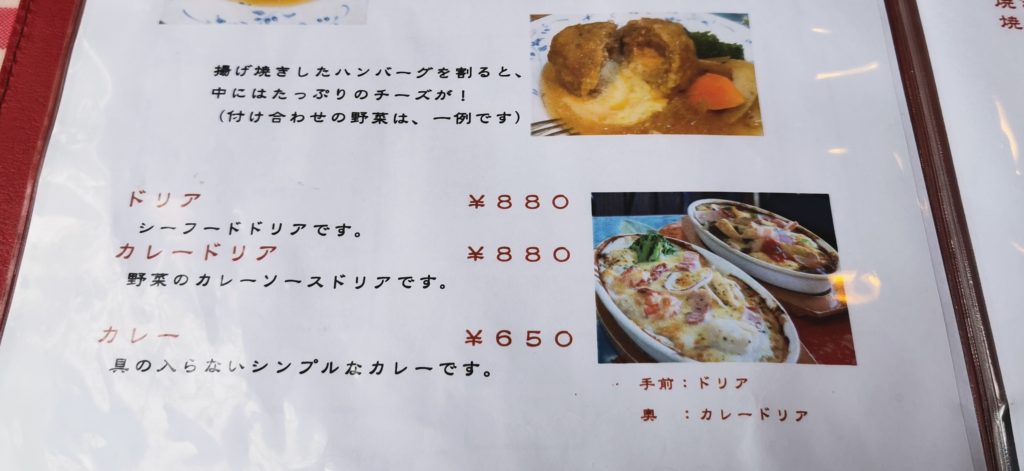 揚げ焼きしたハンバーグを割ると、
中にはたっぷりのチーズが！
（付け合わせの野菜は、一例です）
ドリア ￥８８０
シーフードドリアです。
カレードリア ￥８８０
野菜のカレーソースドリアです。
カレー ￥６５０
具の入らないシンプルなカレーです。
手前：ドリア
奥　：カレードリア